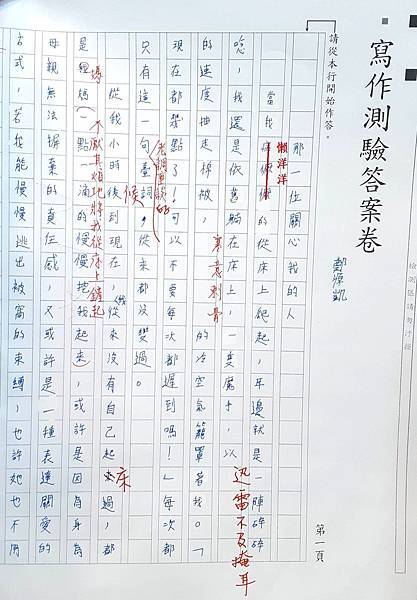 寫作測驗答案卷
檢測區請勿汙損
第一頁
請從本行開始作答。
那一位關心我的人
當我懶洋洋的從床上爬起，耳邊就是一陣碎碎
懶洋洋
唸，我還是依舊躺在床上，一隻魔手，以
迅雷不及掩耳
的速度抽走棉被，的冷空氣籠罩著我。「
寒意刺骨
現在都幾點了！可以不要每次都遲到嗎！」每次都
只有這一句臺詞，從來都沒變過。
老調重彈的
從我小時後到現在，我從來沒有自己起床過，都
候
床
是媽媽一點一滴的慢慢挖我起來，或許是因為身為
媽
不厭其煩地將我從床上鏟起
母親無法摒棄的責任感，又或許是一種表達關愛的
方式，若我能慢慢逃出被窩的束縛，也許她也不用